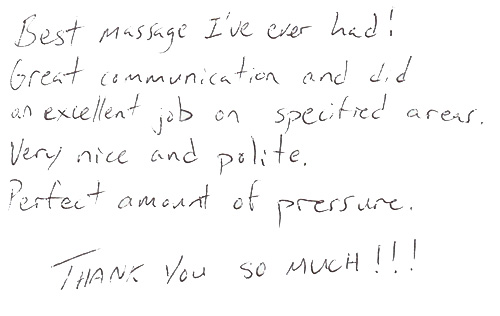 Best massage I've ever had!
Great communication and did
an excellent job on specified areas.
Very nice and polite.
Perfect amount of pressure.
THANK YOU SO MUCH!!!